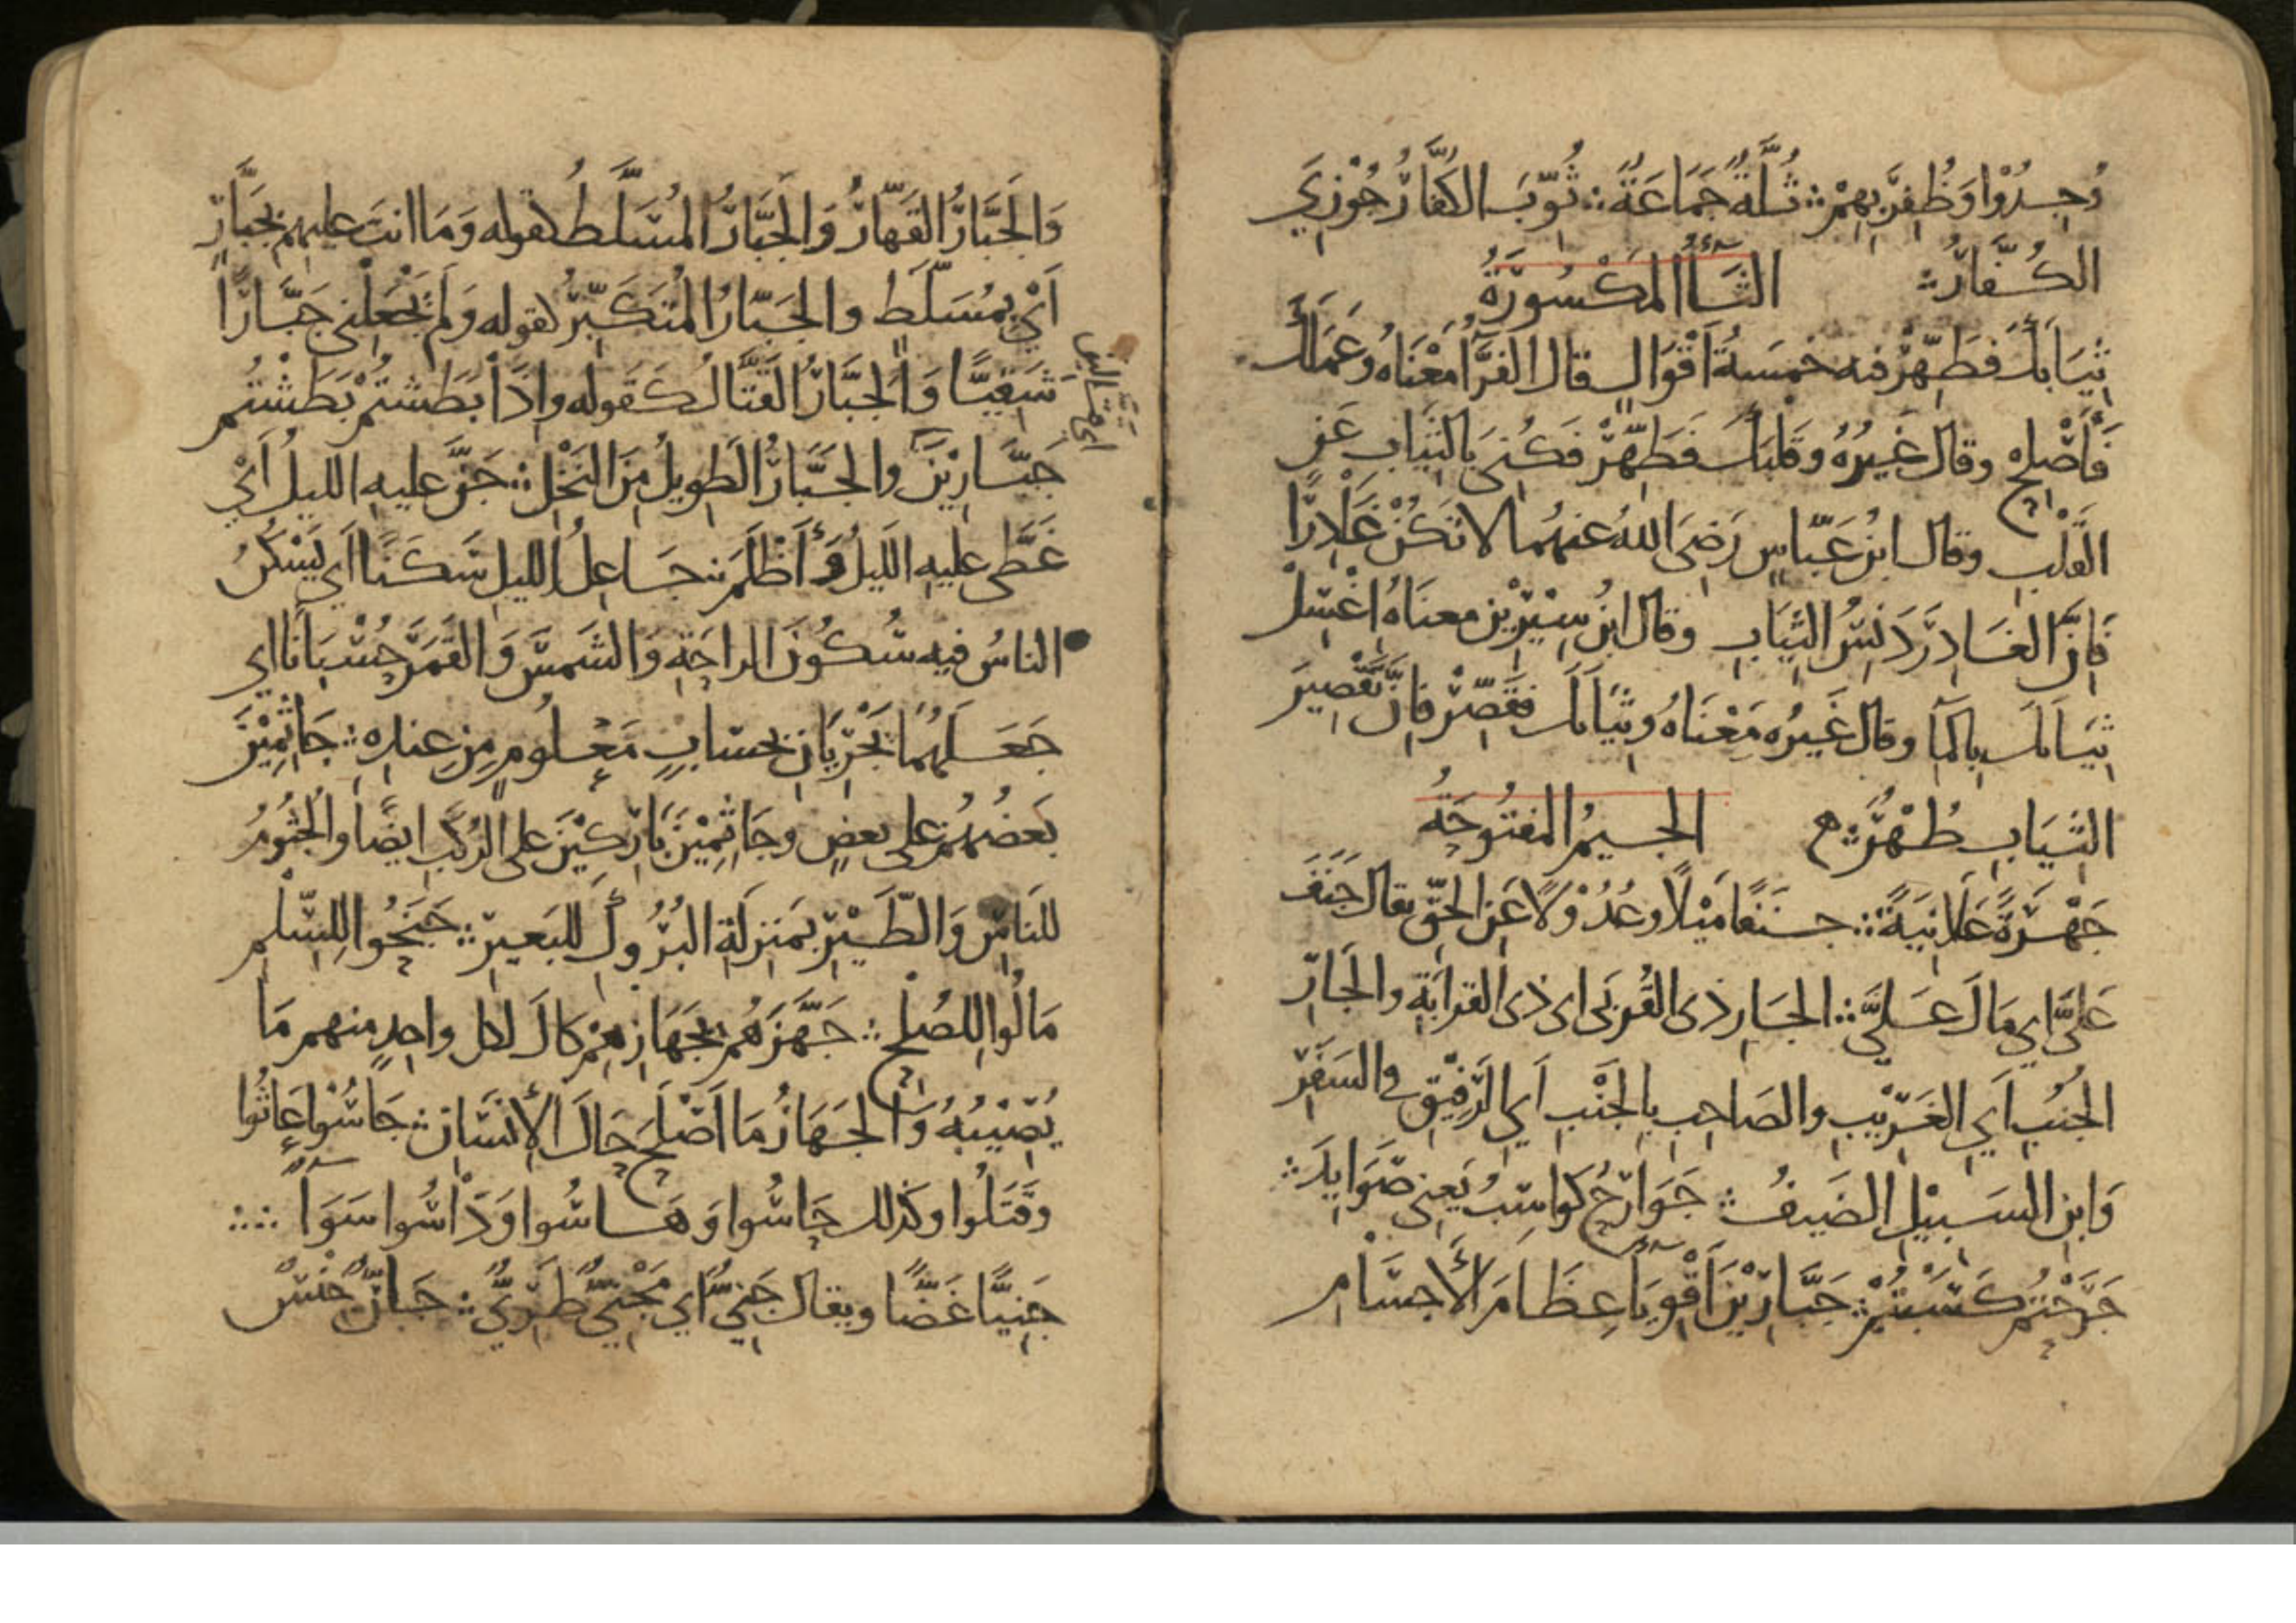 وُجِدُوْا وَظُفِرَ بِهِمْ ∴ ثُلَّةٌ جَمَاعَةٌ ∴ ثُوِّبَ الكُفَّارُ جُوْزِيَ
الكُفَّارُ ∴ الثَّاءُ المَكْسُورَةُ
ثِيَابَكَ فَطَهِّرْ فيه خمسَةُ أَقْوَالٍ قال الفَرَّاءُ مَعْنَاهُ وَعَمَلَكَ
فَأَصْلِحْ وقال غَيْرُهُ وقَلبَكَ فَطَهِّرْ فَكُنِيَ بالثِيَابِ عَنِ
القَلْبِ وقال ابنُ عَبّاسٍ رَضِيَ اللهُ عنهُمَا لا تَكُنْ غَادِرًا
فَإِنَّ الغَادِرَ دَنِسُ الثِيَابِ وقال ابنُ سِيْرِيْنَ معناهُ اغْسِلْ
ثِيَابَكَ بالمَآءِ وقال غَيْرُه مَعْنَاهُ وثِيَابَكَ فقَصِّرْ فإنَّ تَقْصِيرَ
الثِيَابِ طُهْرٌ ∴ الجيمُ المفتُوحَةُ
جَهْرَةً عَلَانِيَةً ∴ جَنَفًا مَيْلًا وعُدُوْلًا عَنِ الحَقِّ يقال جَنَفَ
عَلَيَّ اي مَالَ عَلَيَّ ∴ الجَارِ ذى القُرْبَى اى ذى القرابَةِ والجَارِ
الجُنُبِ أَيِ الغَرِيْبِ والصَاحِبِ بالجَنْبِ أَيِ الرَفِيْقِ في السَفَرِ
وَابنِ السَبِيْلِ الضَيفُ ∴ جَوَارِحُ كواسِبُ يَعنِي صَوَايِدَ ∴
جَرَحْتُم كَسَبْتُمْ ∴ جَبَّارِيْنَ أَقْوِيَاءَ عِظَامَ الأَجسَامِ
وَالجَبَّارُ القَهّارُ وَالجَبَّارُ المُسَلَّطُ كقوله وَمَا انتَ عليهِم بجَبَّارٍ
أَيْ بمُسَلَّطٍ والجَبّارُ المُتَكَبِّرُ كقوله وَلَمْ يَجْعَلْنِي جَبَّارًا
شَقِيًّا وَالجَبَّارُ القَتَّالُ كَقَوله وإذَا بَطَشْتُمْ بَطَشْتُم
جَبَّارِيْنَ والجَبَّارُ الطَوِيلُ مِنَ النَخْلِ ∴ جَنَّ عليه الليلُ أَيْ
غَطَّى عليه الليلُ وَأَظْلَمَ ∴ جَاعِلُ الليلِ سَكَنًا أَي يَسْكُنُ
الناسُ فيه سُكُونَ الراحَةِ وَالشَمسَ وَالقَمَرَ حُسْبَانًا اي
جَعَلَهُمَا يَجْرِيَانِ بحسَابٍ مَعْلُومٍ مِن عِندِهِ ∴ جَاثِمِيْنَ
بَعضُهُمْ على بعضٍ وجَاثِمِيْنَ بَارِكِيْنَ على الرُكَبِ ايضًا والجُثُومُ
للنَاسِ وَالطَّيْرِ بمَنزِلَةِ البُرُوكِ للبَعِيرِ ∴ جَنَحُوا لِلسَّلْمِ
مَالُوا لِلصُلْحِ ∴ جَهَّزَهُم بجَهَازِهِمْ كَالَ لكل واحِدٍ منهم مَا
يُصِيْبُهُ وَالجَهَازُ مَا أَصْلَحَ حَالَ الإنْسَانِ ∴ جَاسُوْا عَاثُوا
وقَتَلُوا وكذلك حَاسُوا وَهَاسُوا وَدَاسُوا سَوَاءً ∴
جَنِيًّا غَضًّا ويقال جَنِيٌّ أي مَجْنِيٌّ طَرِيٌّ ∴ جَانٌّ جِنْسٌ